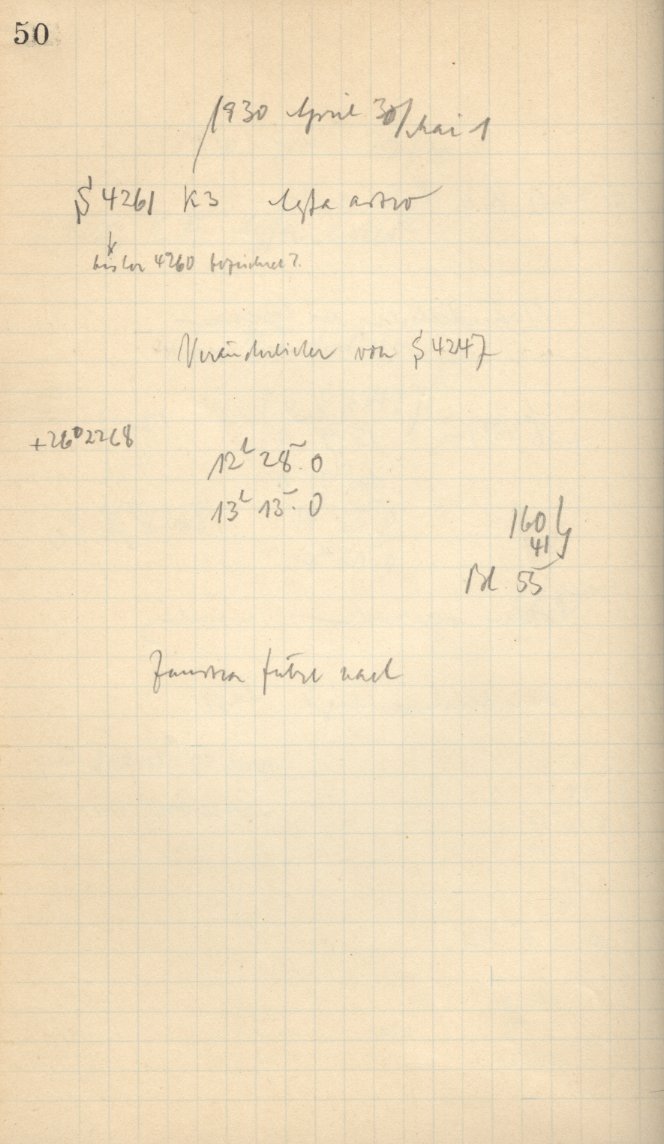 50
1930 April 30/Mai 1
S 4261 K3 Agfa astro
bisher 4260 bezeichnet?
Veränderlicher von S 4247
+26°2268
12h 28m.0
13h 15m.0
160
41
Bd 55
führt nach